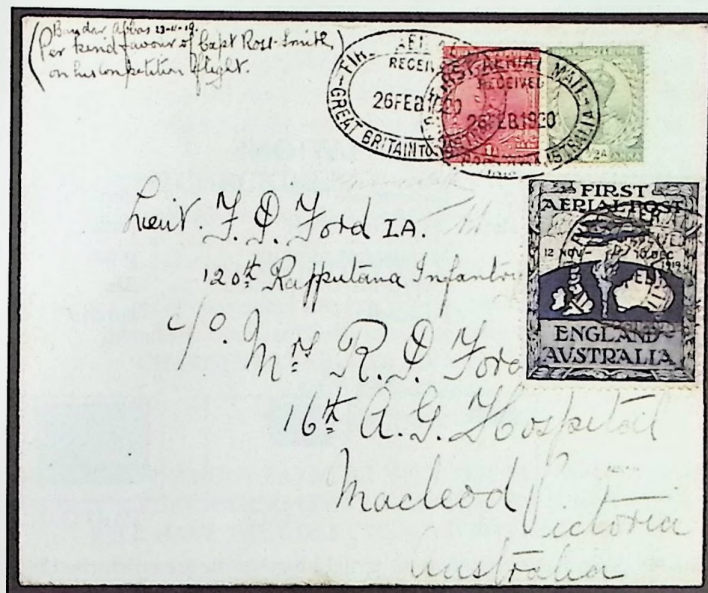 (Bandar Abbas 23-11-19.
Per kind favour of Capt Ross-Smith,
on his competition flight.)
FIRST AERIAL MAIL
RECEIVED
26 FEB 1920
GREAT BRITAIN TO AUSTRALIA
FIRST AERIAL MAIL
RECEIVED
26 FEB 1920
AUSTRALIA
FIRST
AERIAL POST
12 NOV - 10 DEC
1919
ENGLAND
AUSTRALIA
Lieut. F. D. Ford IA.
120th Rajputana Infantry
c/o. Mrs R. D. Ford
16th A. G. Hospital
Macleod
Victoria
Australia